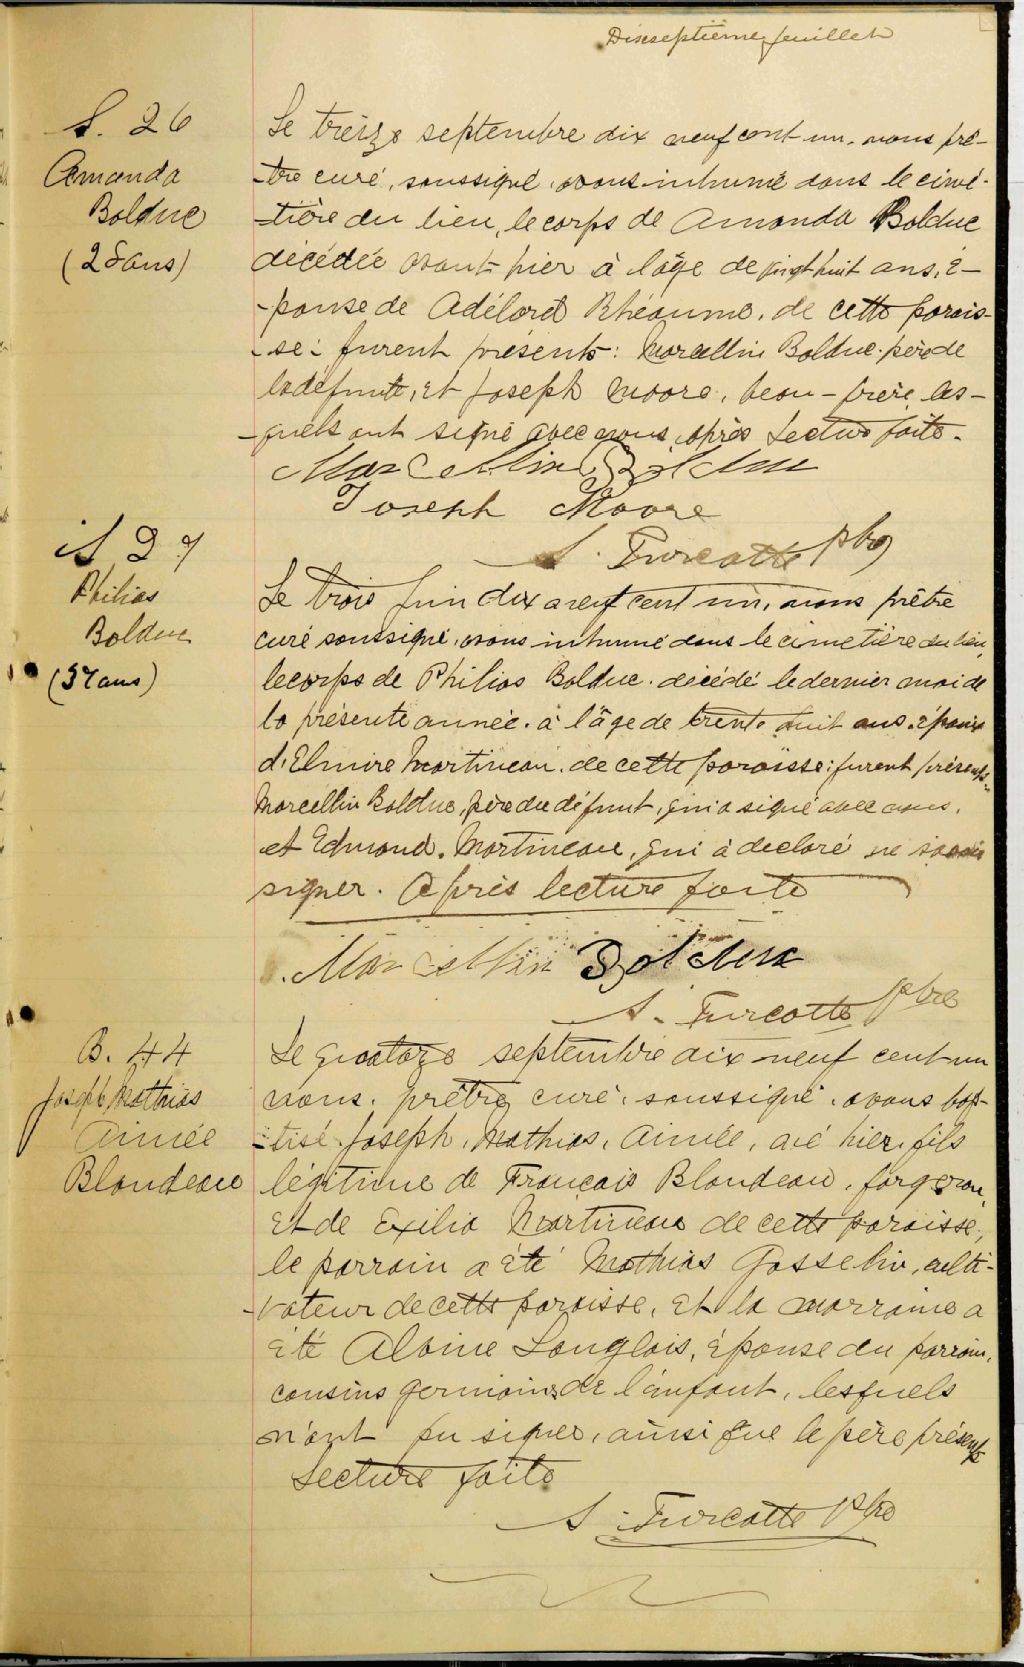 Dixseptième feuillet
S. 26
Amanda
Bolduc
(28 ans)
Le treize septembre dix neuf cent un, nous prê-
-tre curé, soussigné, avons inhumé dans le cimé-
-tière du lieu, le corps de Amanda Bolduc
décédée avant hier à l'âge de vingt huit ans, é-
-pouse de Adélard Rhéaume, de cette parois-
-se : furent présents : Marcellin Bolduc, père de
la défunte, et Joseph Moore, beau-frère, les-
-quels ont signé avec nous, après Lecture faite.
Marcellin Bolduc
Joseph Moore
S. Turcotte ptre
S 27
Philias
Bolduc
(37 ans)
Le trois juin dix neuf cent un, nous prêtre
curé soussigné, avons inhumé dans le cimetière du lieu,
le corps de Philias Bolduc, décédé le dernier mai de
la présente année, à l'âge de trente huit ans, époux
d'Elmire Martineau, de cette paroisse : furent présents,
Marcellin Bolduc, père du défunt, qui a signé avec nous,
et Edmond Martineau, qui a déclaré ne savoir
signer. Après lecture faite
Marcellin Bolduc
S. Turcotte ptre
B. 44
Joseph Mathias
Aimée
Blondeau
Le quatorze septembre dix-neuf cent un
nous, prêtre curé, soussigné, avons bap-
-tisé Joseph, Mathias, Aimée, né hier, fils
légitime de Francois Blondeau, forgeron,
et de Exilia Martineau de cette paroisse,
le parrain a été Mathias Gosselin, culti-
-vateur de cette paroisse, et la marraine a
été Albine Langlois, épouse du parrain,
cousins germains de l'enfant, lesquels
n'ont pu signer, ainsi que le père présent
Lecture faite
S. Turcotte ptre